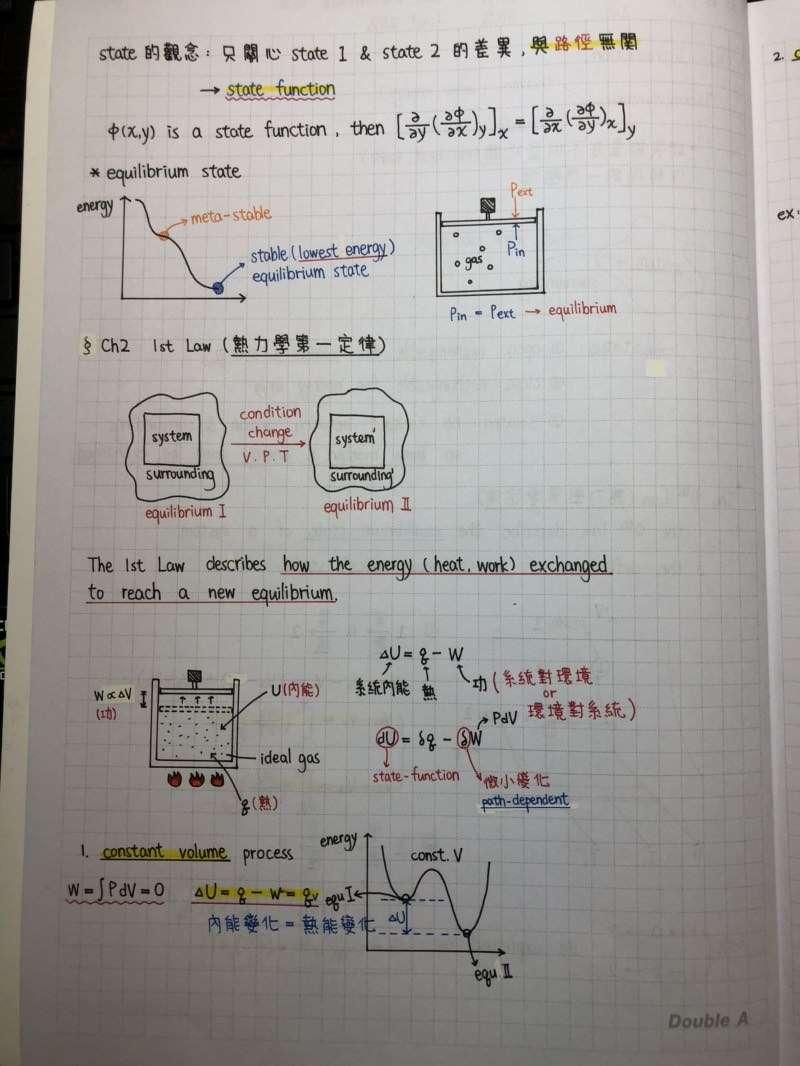 state 的觀念：只關心 state 1 & state 2 的差異，與路徑無関
→ state function
ϕ(x,y) is a state function, then [∂/∂y(∂ϕ/∂x)y]x = [∂/∂x(∂ϕ/∂y)x]y
* equilibrium state
energy
meta-stable
stable (lowest energy)
equilibrium state
Pext
Pin
gas
Pin = Pext → equilibrium
§ Ch2 1st Law (熱力學第一定律)
system
surrounding
equilibrium I
condition
change
V. P. T
system'
surrounding'
equilibrium II
The 1st Law describes how the energy (heat, work) exchanged
to reach a new equilibrium.
W ∝ ΔV
(功)
U(內能)
ideal gas
q(熱)
ΔU = q - W
系統內能 熱 功 (系統對環境
or
環境對系統)
PdV
dU = δq - δW
state-function
微小變化
path-dependent
1. constant volume process
W = ∫PdV = 0 ΔU = q - W = qv
內能變化 = 熱能變化
energy
const. V
equ I
ΔU
equ. II
Double A
2.
ex: